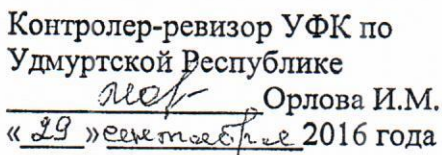 Контролер-ревизор УФК по
Удмуртской Республике
Орлова И.М.
«29» сентября 2016 года